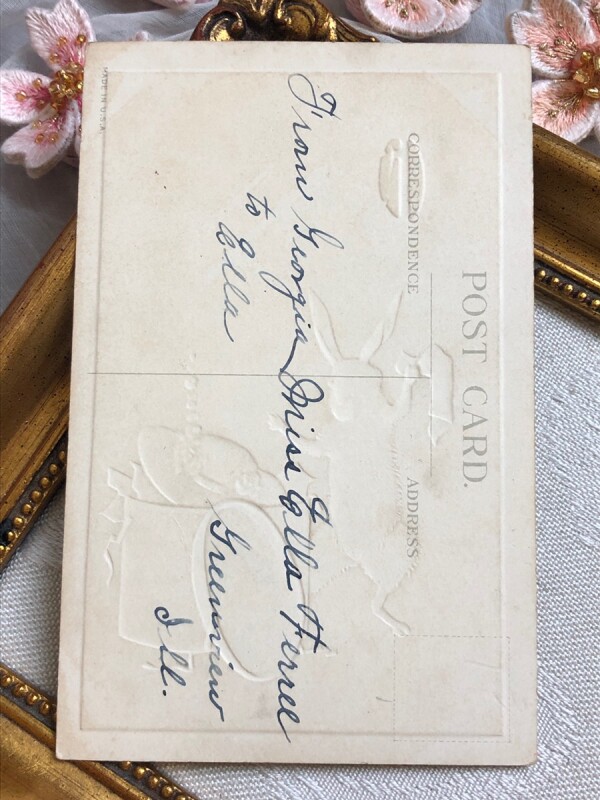 POST CARD.
CORRESPONDENCE
ADDRESS
From Georgia
to
Ella
Miss Ella Ferree
Greenview
Ill.
MADE IN U.S.A.